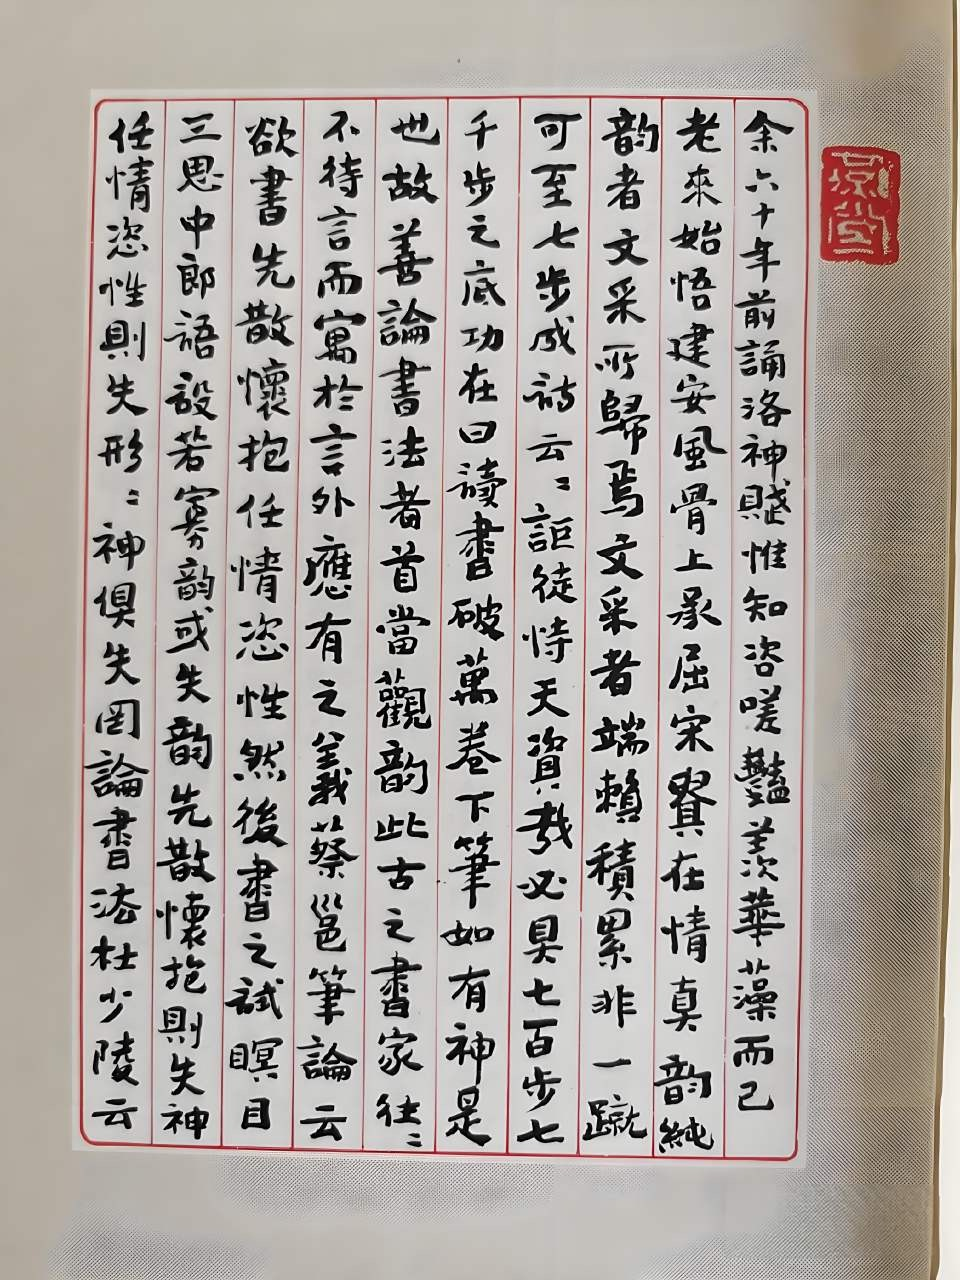 余六十年前誦洛神賦惟知咨嗟豔羨華藻而已
老來始悟建安風骨上承屈宋賢在情真韵純
韵者文采所歸焉文采者端賴積累非一蹴
可至七步成詩云〻詎徒恃天資哉必具七百步七
千步之底功在曰讀書破萬卷下筆如有神是
也故善論書法者首當觀韵此古之書家往〻
不待言而寓於言外應有之義蔡邕筆論云
欲書先散懷抱任情恣性然後書之試瞑目
三思中郎語設若寡韵或失韵先散懷抱則失神
任情恣性則失形〻神俱失因論書法杜少陵云